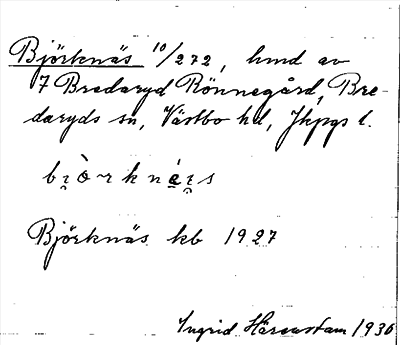 Björknäs 10/272, hmd av
7 Bredaryd Rönnegård, Bre-
daryds sn, Västbo hd, Jkpgs l.
Björknäs kb 1927
Ingrid 1930